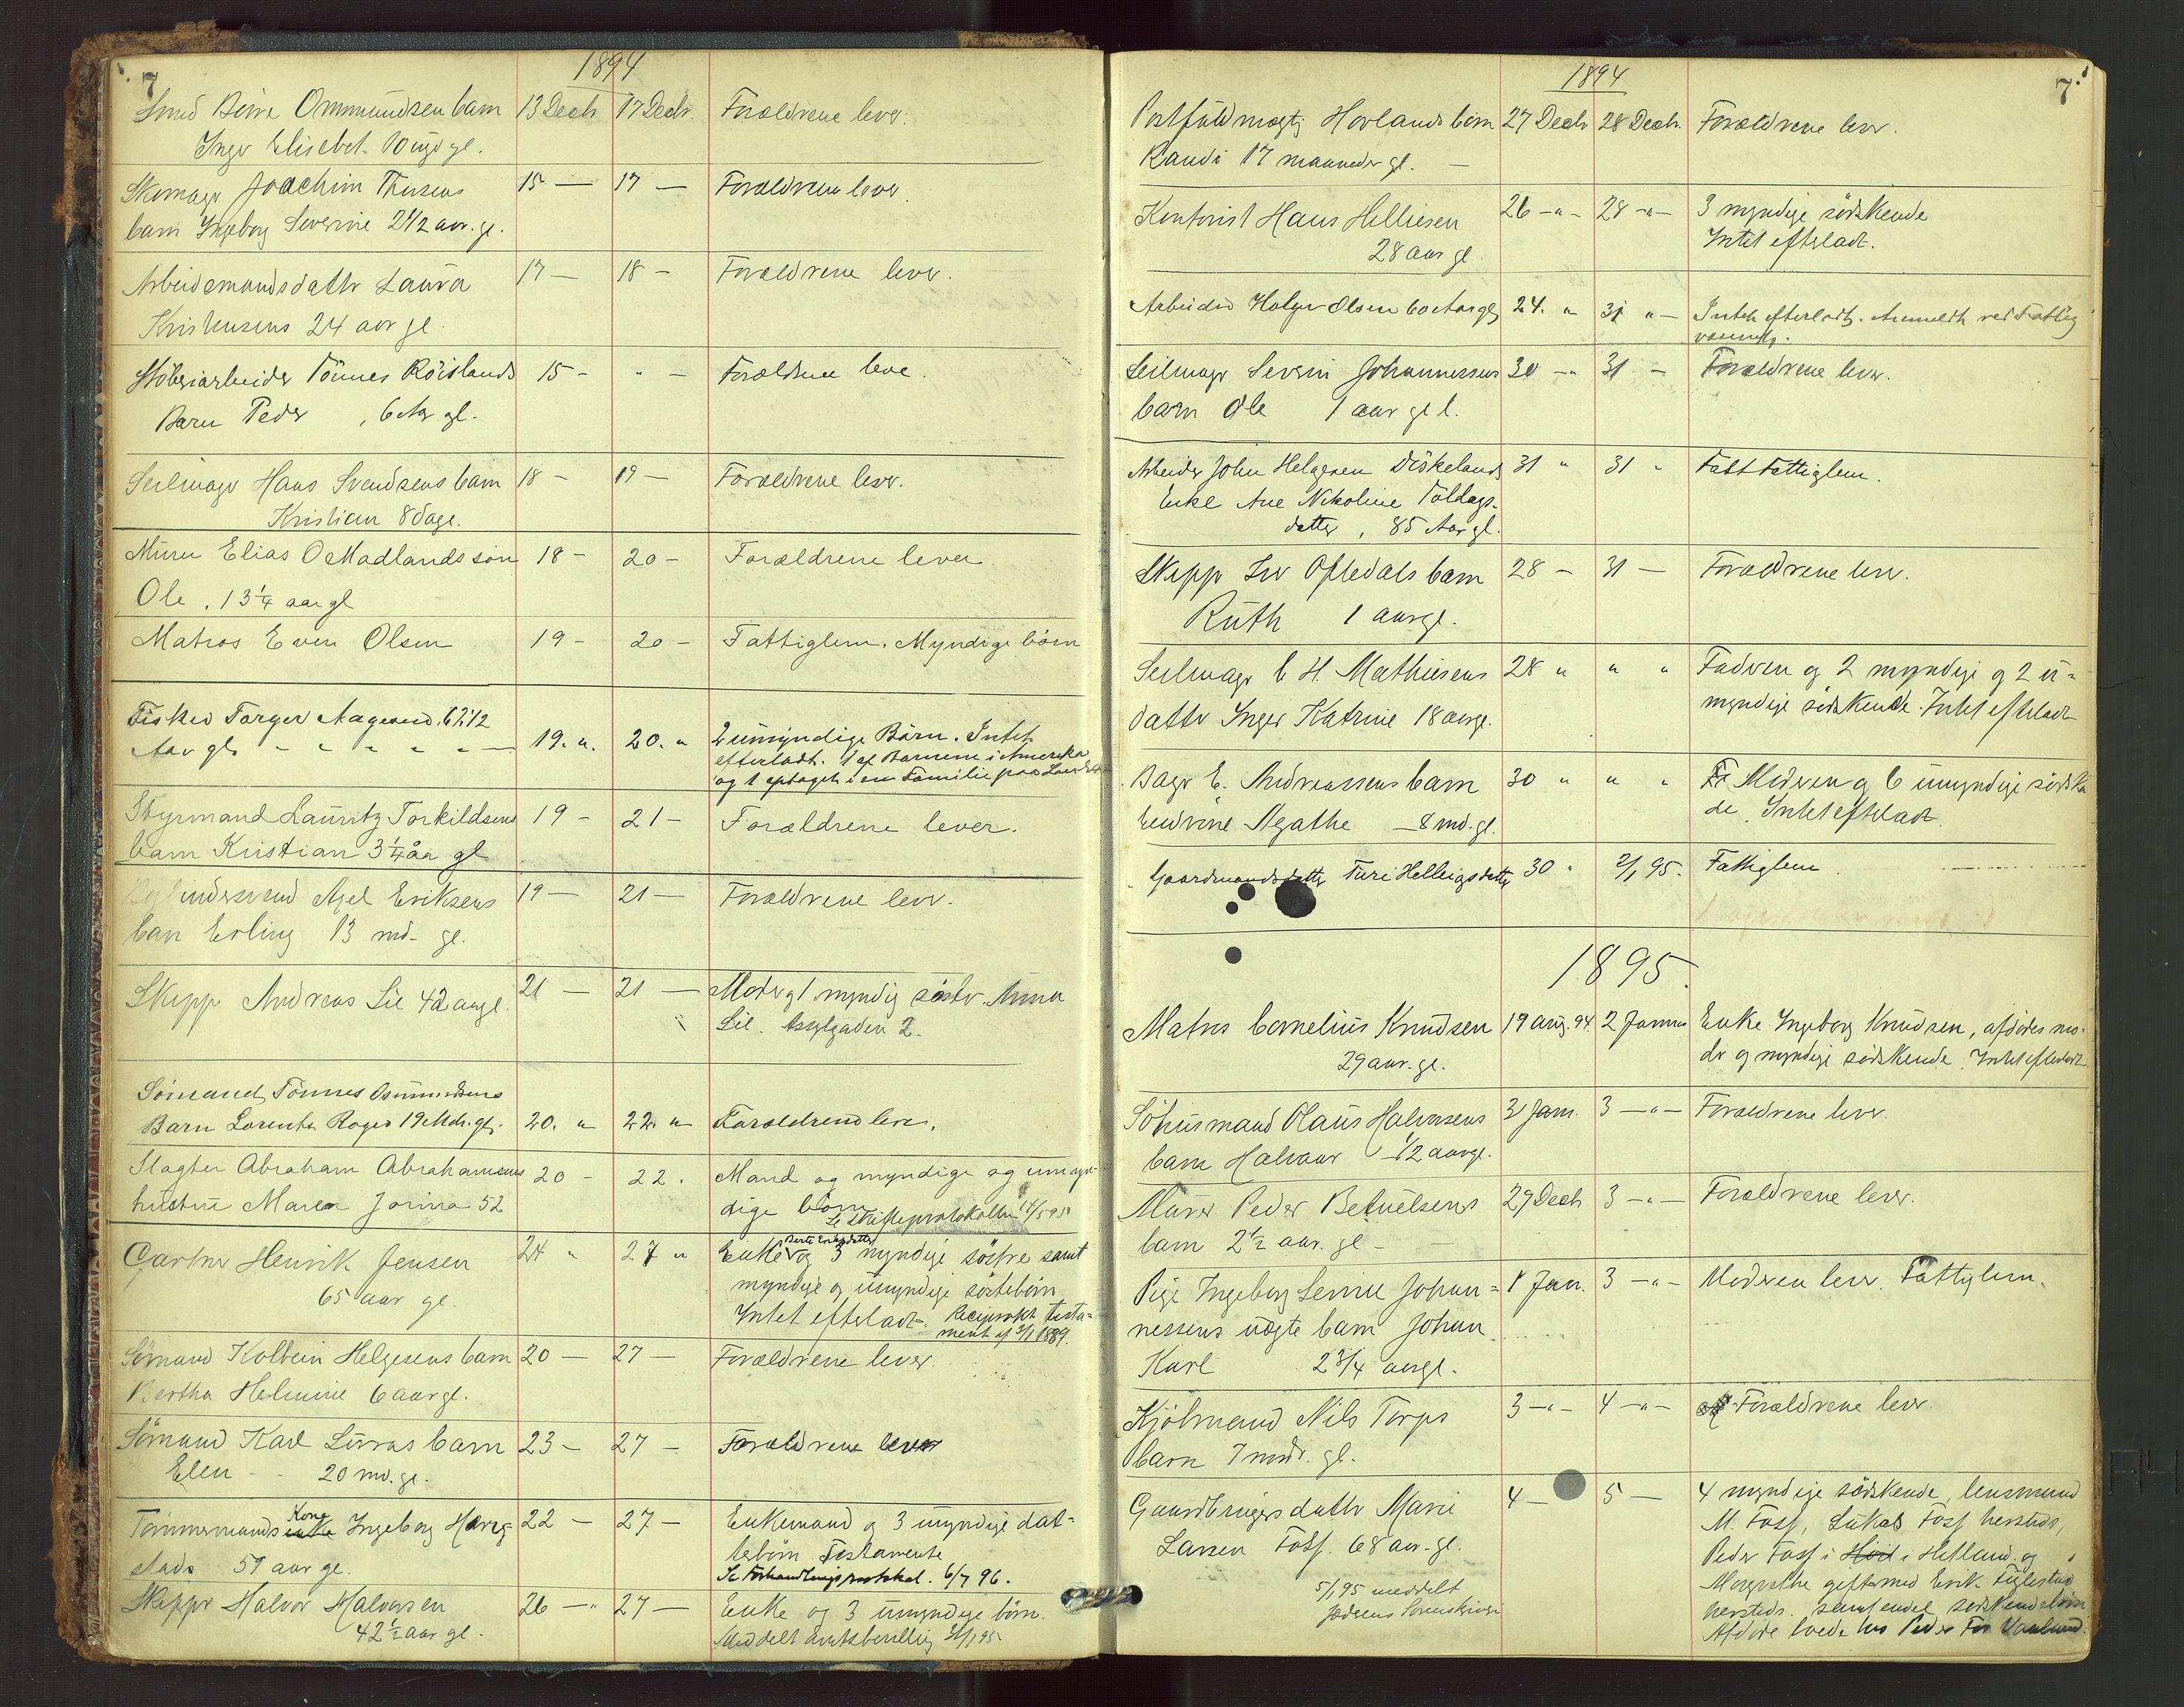 7
1894
Smed Børre Ommundsen barn 13 Decbr 17 Decbr. Forældrene lever.
Inger Elisebet 10 uger gl.
Skomager Joachim Thusens 15 — 17 — Forældrene lever.
barn Ingeborg Severine 2 1/2 aar. gl.
Arbeidsmandsdatter Laura 17 — 18 — Forældrene lever.
Kristensens 24 aar gl.
Støberiarbeider Tønnes Röislands 15 - " - Forældrene leve.
Barn Peder , 6 Aar gl.
Seilmager Hans Svendsens barn 18 - 19 — Forældrene lever.
Kristian 8 dage.
Murer Elias O Madlands søn 18 - 20 - Forældrene lever
Ole . 13 1/4 aar gl
Matros Even Olsen 19 - 20 - Fattiglem. Myndige børn
Fisker Torger Aagesen, 67 1/2
Aar gl. 19. " 20. " 2 umyndige Børn. Intet
efterladt. 1 af Børnene i Amerika
og 1 optaget i en Familie paa Landet
Styrmand Lauritz Torkildsens 19 - 21 - Forældrene lever.
barn Kristian 3 1/4 åar gl
Axel Eriksens 19 — 21 — Forældrene lever.
barn Erling 13 md. gl.
Skipper Andreas Lie 42 aargl. 21 — 21 — Moder og 1 myndig søster Anna
Lie. Asylgaden 2.
Sømand Tønnes Osmundsens
Barn Lorents Roger 19 Mdr. gl. 20. " 22. " Forældrene lever.
Slagter Abraham Abrahamsens 20 - 22. Mand og myndige og umyn-
hustru Maren Jorina 52 dige børn
Se Skifteprotokollen 14/5 95
Gartner Henrik Jensen 24 " 27 " Enke Berte Eriksdatter og 3 myndige søstre samt
65 aar gl. myndige og umyndige søstebørn
Intet efterladt. Reciprokt testa-
ment af 3/1 1889.
Sømand Kolbein Helgesens barn 20 — 27 — Forældrene lever.
Bertha Helmine 6 aar gl.
Sømand Karl Luras barn 23 - 27 - Forældrene lever
Elen - - 20 md. gl.
Tømmermands enke Kone Ingeborg Haug- 22 — 27 — Enkemand og 3 umyndige dat-
stads 59 aar gl. terbørn Testamente
Se Forhandlingsprotokol. 6/7 96.
Skipper Halvor Halvorsen 26 — " 27 — Enke og 3 umyndige børn.
42 1/2 aar gl. Meddelt amtsbevilling 31/1 95
1894
7.
Postfuldmægtig Hovlands barn 27 Decbr 28 Decbr. Forældrene lever.
Randi 17 maaneder gl. —
Kontorist Hans Helliesen 26 — " — 28 — " — 3 myndige sødskende
28 aar gl. Intet efterladt.
Arbeider Holger Olsen 60 Aar gl 24. " 31 " — Intet efterladt. Anmeldt ved Fattig
væsenet.
Seilmager Severin Johannessens 30 — " 31 — Forældrene lever.
barn Ole 1 aar gl.
Arbeider John Helgesen Diskelands 31 " 31 " Fatt Fattiglem.
Enke Ane Nikoline Tollags-
datter , 85 Aar gl.
Skipper Ivr Oftedals barn 28 — 31 — Forældrene lever.
Ruth 1 aar gl.
Seilmager C H. Mathiesens 28 " " " Fadren og 2 myndige og 2 u-
datter Inger Katrine 18 aar gl. myndige sødskende. Intet efterladt
Bager E. Andreassens barn 30 " " " Modren og 6 umyndige sødsken
Endrine Agathe — 8 md. gl. de. Intet efterladt.
Gaardmandsdatter Turi Helleigsdatter 30 " 2/1 95. Fattiglem.
1895.
Matros Cornelius Knudsen 19 Aug. 94. 2 Januar Enke Ingeborg Knudsen, afdødes mo-
29 aar. gl. der og myndige sødskende. Intet efterladt
Söhusmand Olaus Halvorsens 3 Jan. 3 — " — Forældrene lever.
barn Halvaar 1/2 aar gl.
Murer Peder Betuelsens 29 Decb 3 — " — Forældrene lever.
barn 2 1/2 aar. gl —
Pige Ingeborg Serine Johan- 1 Jan. 3 — " — Moderen lever. Fattiglem.
nessens uægte barn Johan
Karl 2 3/4 aar gl.
Kjøbmand Nils Torps 3 — " — 4 — " — Forældrene lever.
barn 7 mdr. gl.
Gaardbrugersdatter Marie 4 — 5 — 4 myndige sødskende, lensmand
Larsen Foss. 68 aar. gl. M. Foss, Lukas Foss hersteds,
Peder Foss i Höid i Hetland og
5/1 95 meddelt Margrethe gift med Erik Fuglestad
Jæderens Sorenskriver hersteds. samt endel sødskendebørn
Afdøde boede hos Peder Foss Vaaland.